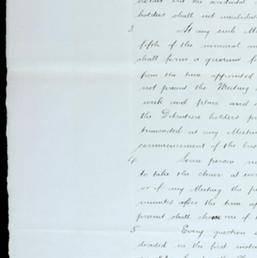 holders shall not invalidate
3. At any such Me
fifth of the nominal am
shall form a quorum f
from the time appointed
not present the Meeting
week and place and
the Debenture holders pre
transacted at any Meeting
commencement of the busi
4. Some person no
to take the chair at eve
or if any Meeting the p
minutes after the time ap
present shall choose one of t
5. Every question s
decided in the first instan